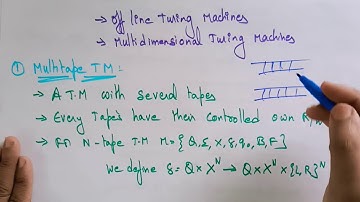 → Off line Turing Machines
→ Multidimensional Turing Machines
① Multitape TM :
→ A T.M with several tapes
→ Every Tape's have their controlled own R/W
→ N-tape T.M M = {Q, Σ, X, δ, q₀, B, F}
We define δ = Q × Xᴺ → Q × Xᴺ × {L, R}ᴺ